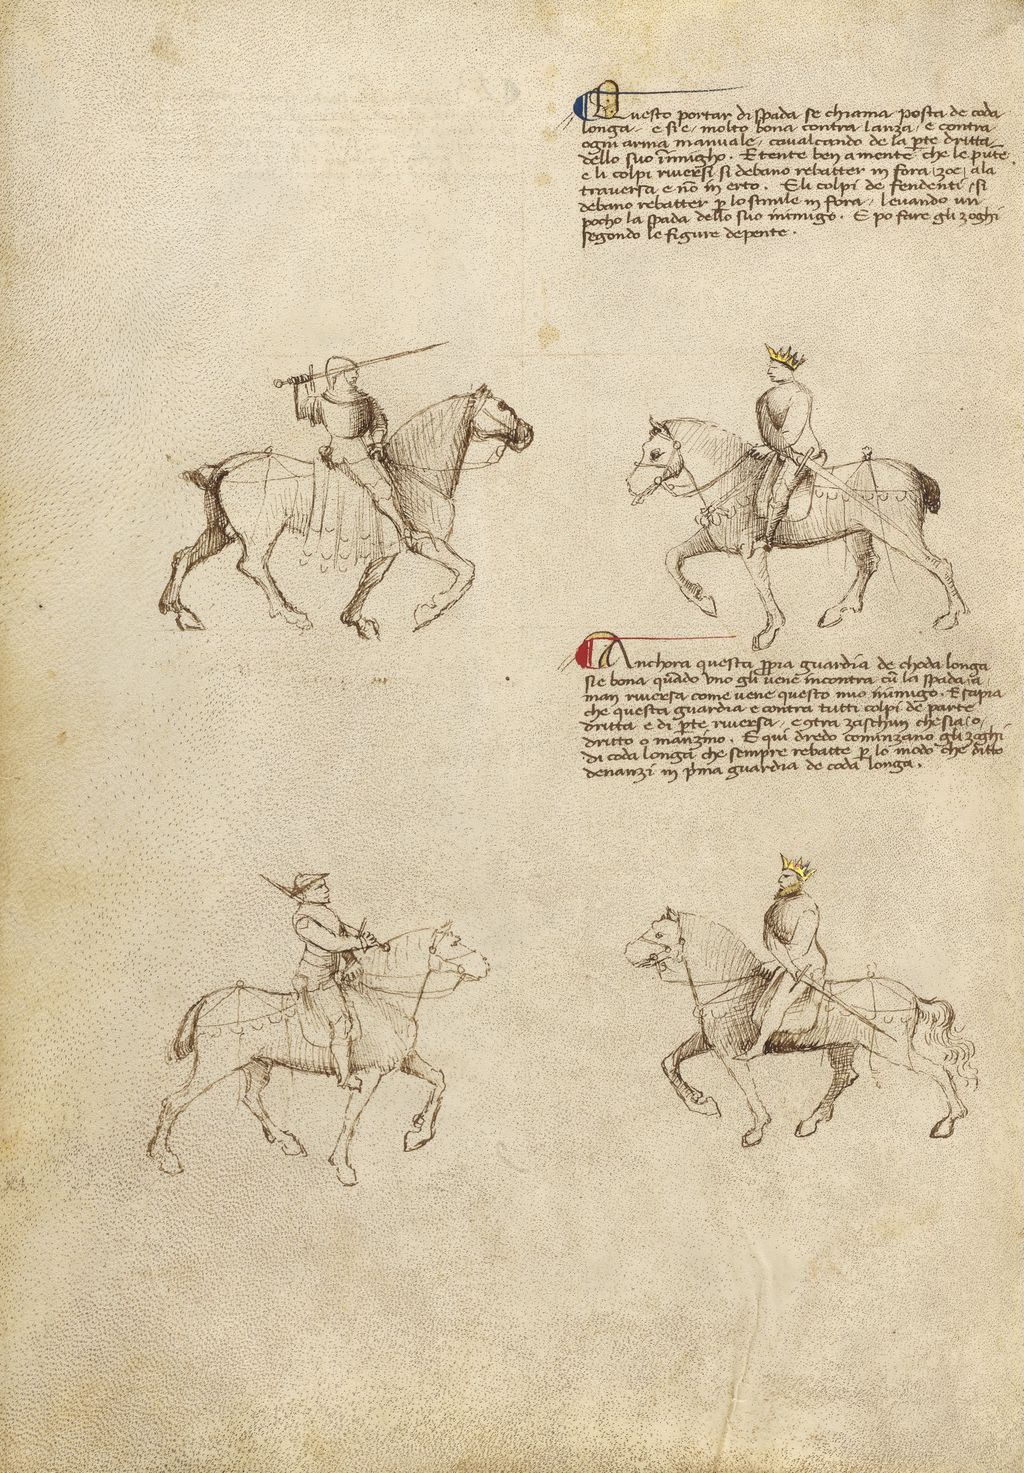 Questo portar di spada se chiama posta de coda
longa. e si e. molto bona contra lanza. e contra
ogni arma manuale, cavalcando de la pte dritta
dello suo inimigho. E tente ben a mente che le pūte
e li colpi riversi si debano rebatter in fora zoe, ala
traversa e nō in erto. E li colpi de fendenti, si
debano rebatter p lo simile in fora, levando un
pocho la spada dello suo inimigo. E po fare gli zoghi
segondo le figure depente.
Anchora questa ppria guardia de choda longa
sie bona quādo uno gli vene incontra cū la spada, a
man riversa come vene questo mio inimigo. E sapia
che questa guardia e contra tutti colpi de parte
dritta e di pte riversa, e 9tra zaschun che sia, o
dritto o manzino. E qui dredo cominzano gli zoghi
di coda longa che sempre rebatte p lo modo che ditto
denanzi in pma guardia de coda longa.